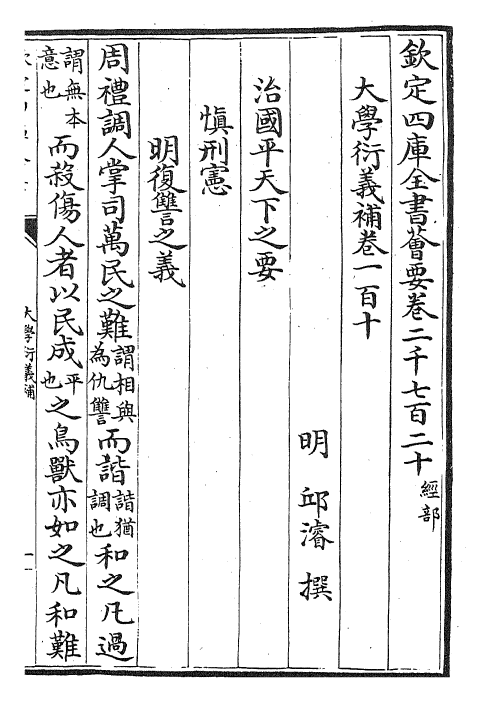 欽定四庫全書薈要卷二千七百二十 經部
大學衍義補卷一百十
明 邱濬 撰
治國平天下之要
慎刑憲
明復讐之義
周禮調人掌司萬民之難謂相與為仇讐而諧諧猶調也和之凡過
謂無本意也而殺傷人者以民成平也之鳥獸亦如之凡和難
大學衍義補
一